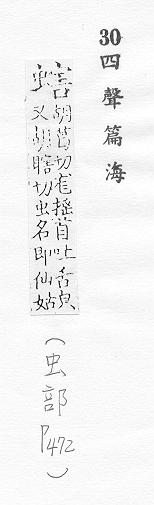 30 四聲篇海
螛胡葛切搖首吐舌皃
又胡瞎切虫名即仙姑
(虫部 P472)